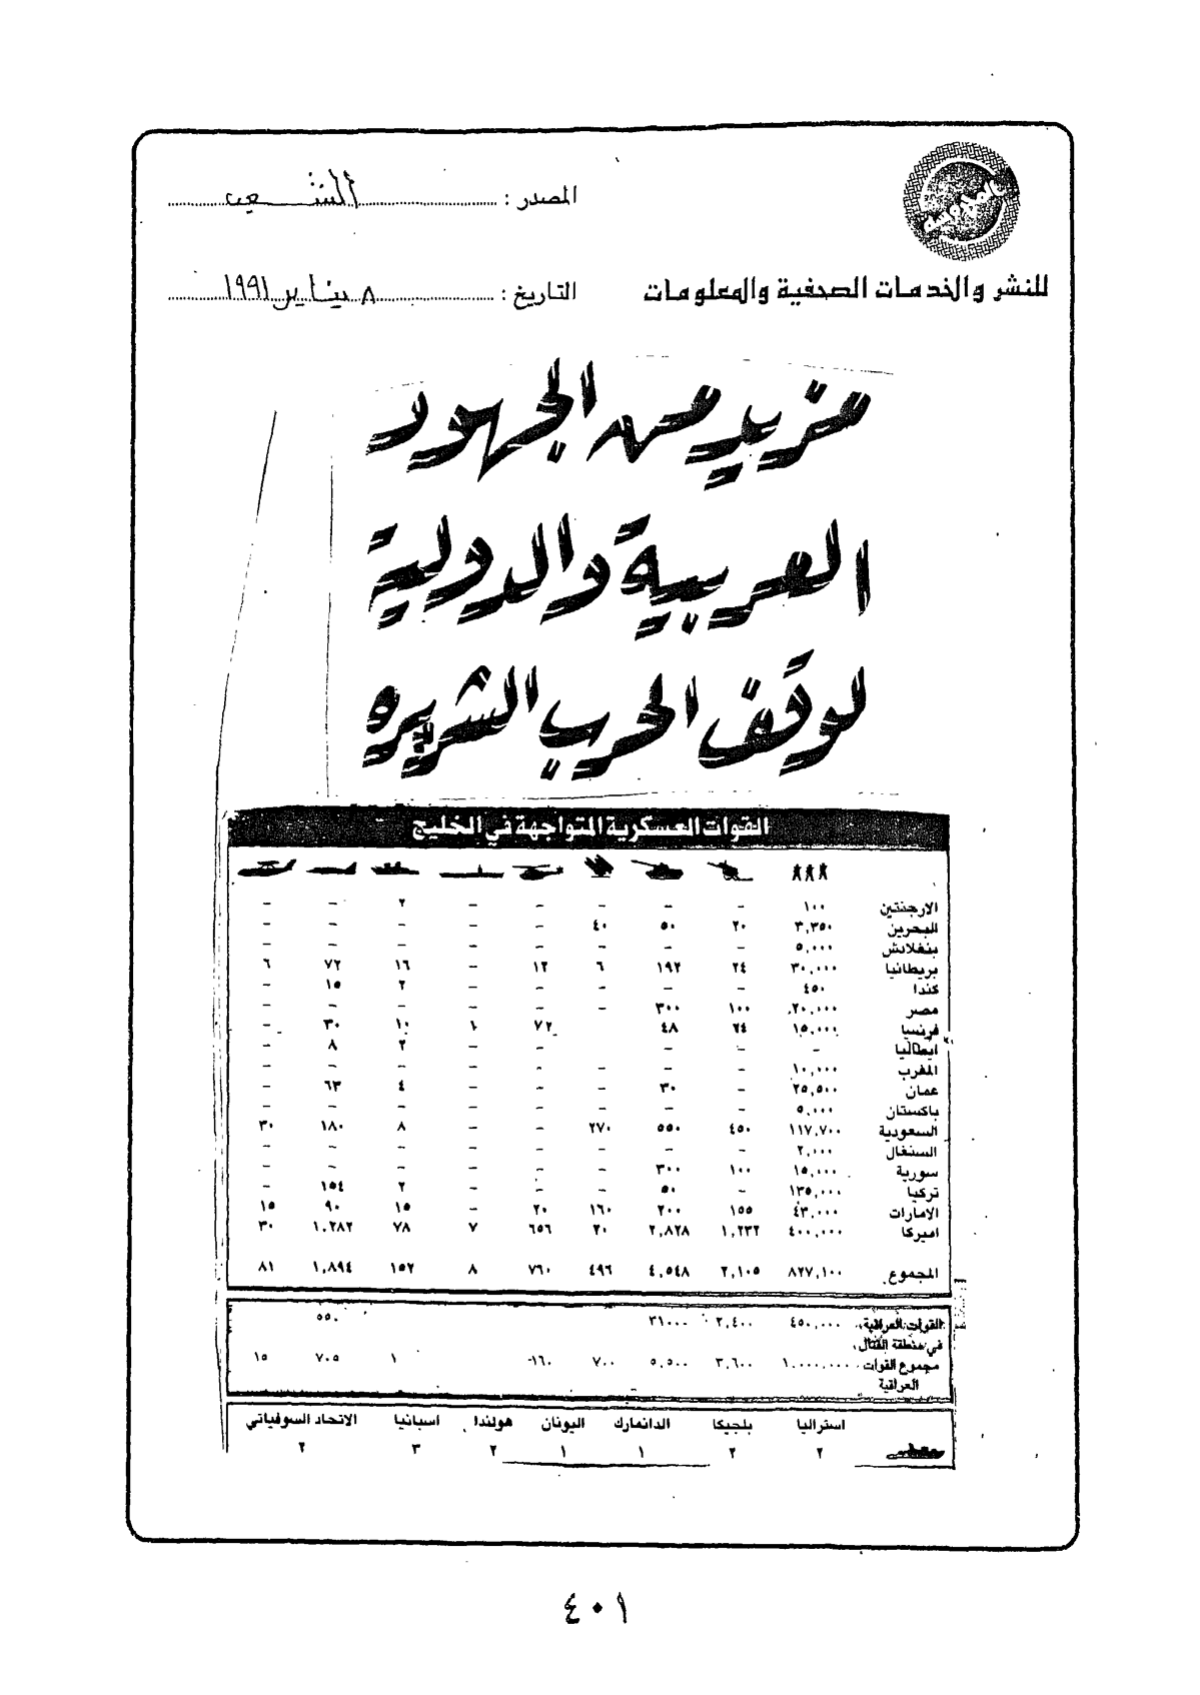 المحروسة
المصدر : الشعب
للنشر والخدمات الصحفية والمعلومات
التاريخ : ٨ يناير ١٩٩١
مزيد من الجهود
العربية والدولية
لوقف الحرب الشريره
القوات العسكرية المتواجهة في الخليج
الارجنتين ١٠٠ – – – – – ٢ – –
البحرين ٣,٣٥٠ ٢٠ ٥٠ ٤٠ – – – – –
بنغلادش ٥,٠٠٠ – – – – – – – –
بريطانيا ٣٠,٠٠٠ ٢٤ ١٩٢ ٦ ١٢ – ١٦ ٧٢ ٦
كندا ٤٥٠ – – – – – ٢ ١٥ –
مصر ٢٠,٠٠٠ ١٠٠ ٣٠٠ – – – – – –
فرنسا ١٥,٠٠٠ ٢٤ ٤٨ ٧٢ ١ ١٠ ٣٠ –
ايطاليا – – – – – ٢ ٨ –
المغرب ١٠,٠٠٠ – – – – – – – –
عمان ٢٥,٥٠٠ – ٣٠ – – – ٤ ٦٣ –
باكستان ٥,٠٠٠ – – – – – – – –
السعودية ١١٧,٧٠٠ ٤٥٠ ٥٥٠ ٢٧٠ – – ٨ ١٨٠ ٣٠
السنغال ٢,٠٠٠ – – – – – – – –
سورية ١٥,٠٠٠ ١٠٠ ٣٠٠ – – – – – –
تركيا ١٣٥,٠٠٠ – ٥٠ – – – ٢ ١٥٤ –
الامارات ٤٣,٠٠٠ ١٥٥ ٢٠٠ ١٦٠ ٢٠ – ١٥ ٩٠ ١٥
اميركا ٤٠٠,٠٠٠ ١,٢٣٢ ٢,٨٢٨ ٢٠ ٦٥٦ ٧ ٧٨ ١,٢٨٢ ٣٠
المجموع ٨٢٧,١٠٠ ٢,١٠٥ ٤,٥٤٨ ٤٩٦ ٧٦٠ ٨ ١٥٢ ١,٨٩٤ ٨١
القوات العراقية ٤٥٠,٠٠٠ ٢,٤٠٠ ٣١٠٠٠ ٥٥٠
في منطقة القتال
مجموع القوات ١,٠٠٠,٠٠٠ ٣,٦٠٠ ٥,٥٠٠ ٧٠٠ ١٦٠ ١ ٧٠٥ ١٥
العراقية
استراليا بلجيكا الدانمارك اليونان هولندا اسبانيا الاتحاد السوفياتي
٢ ٢ ١ ١ ٢ ٣ ٢
٤٠١